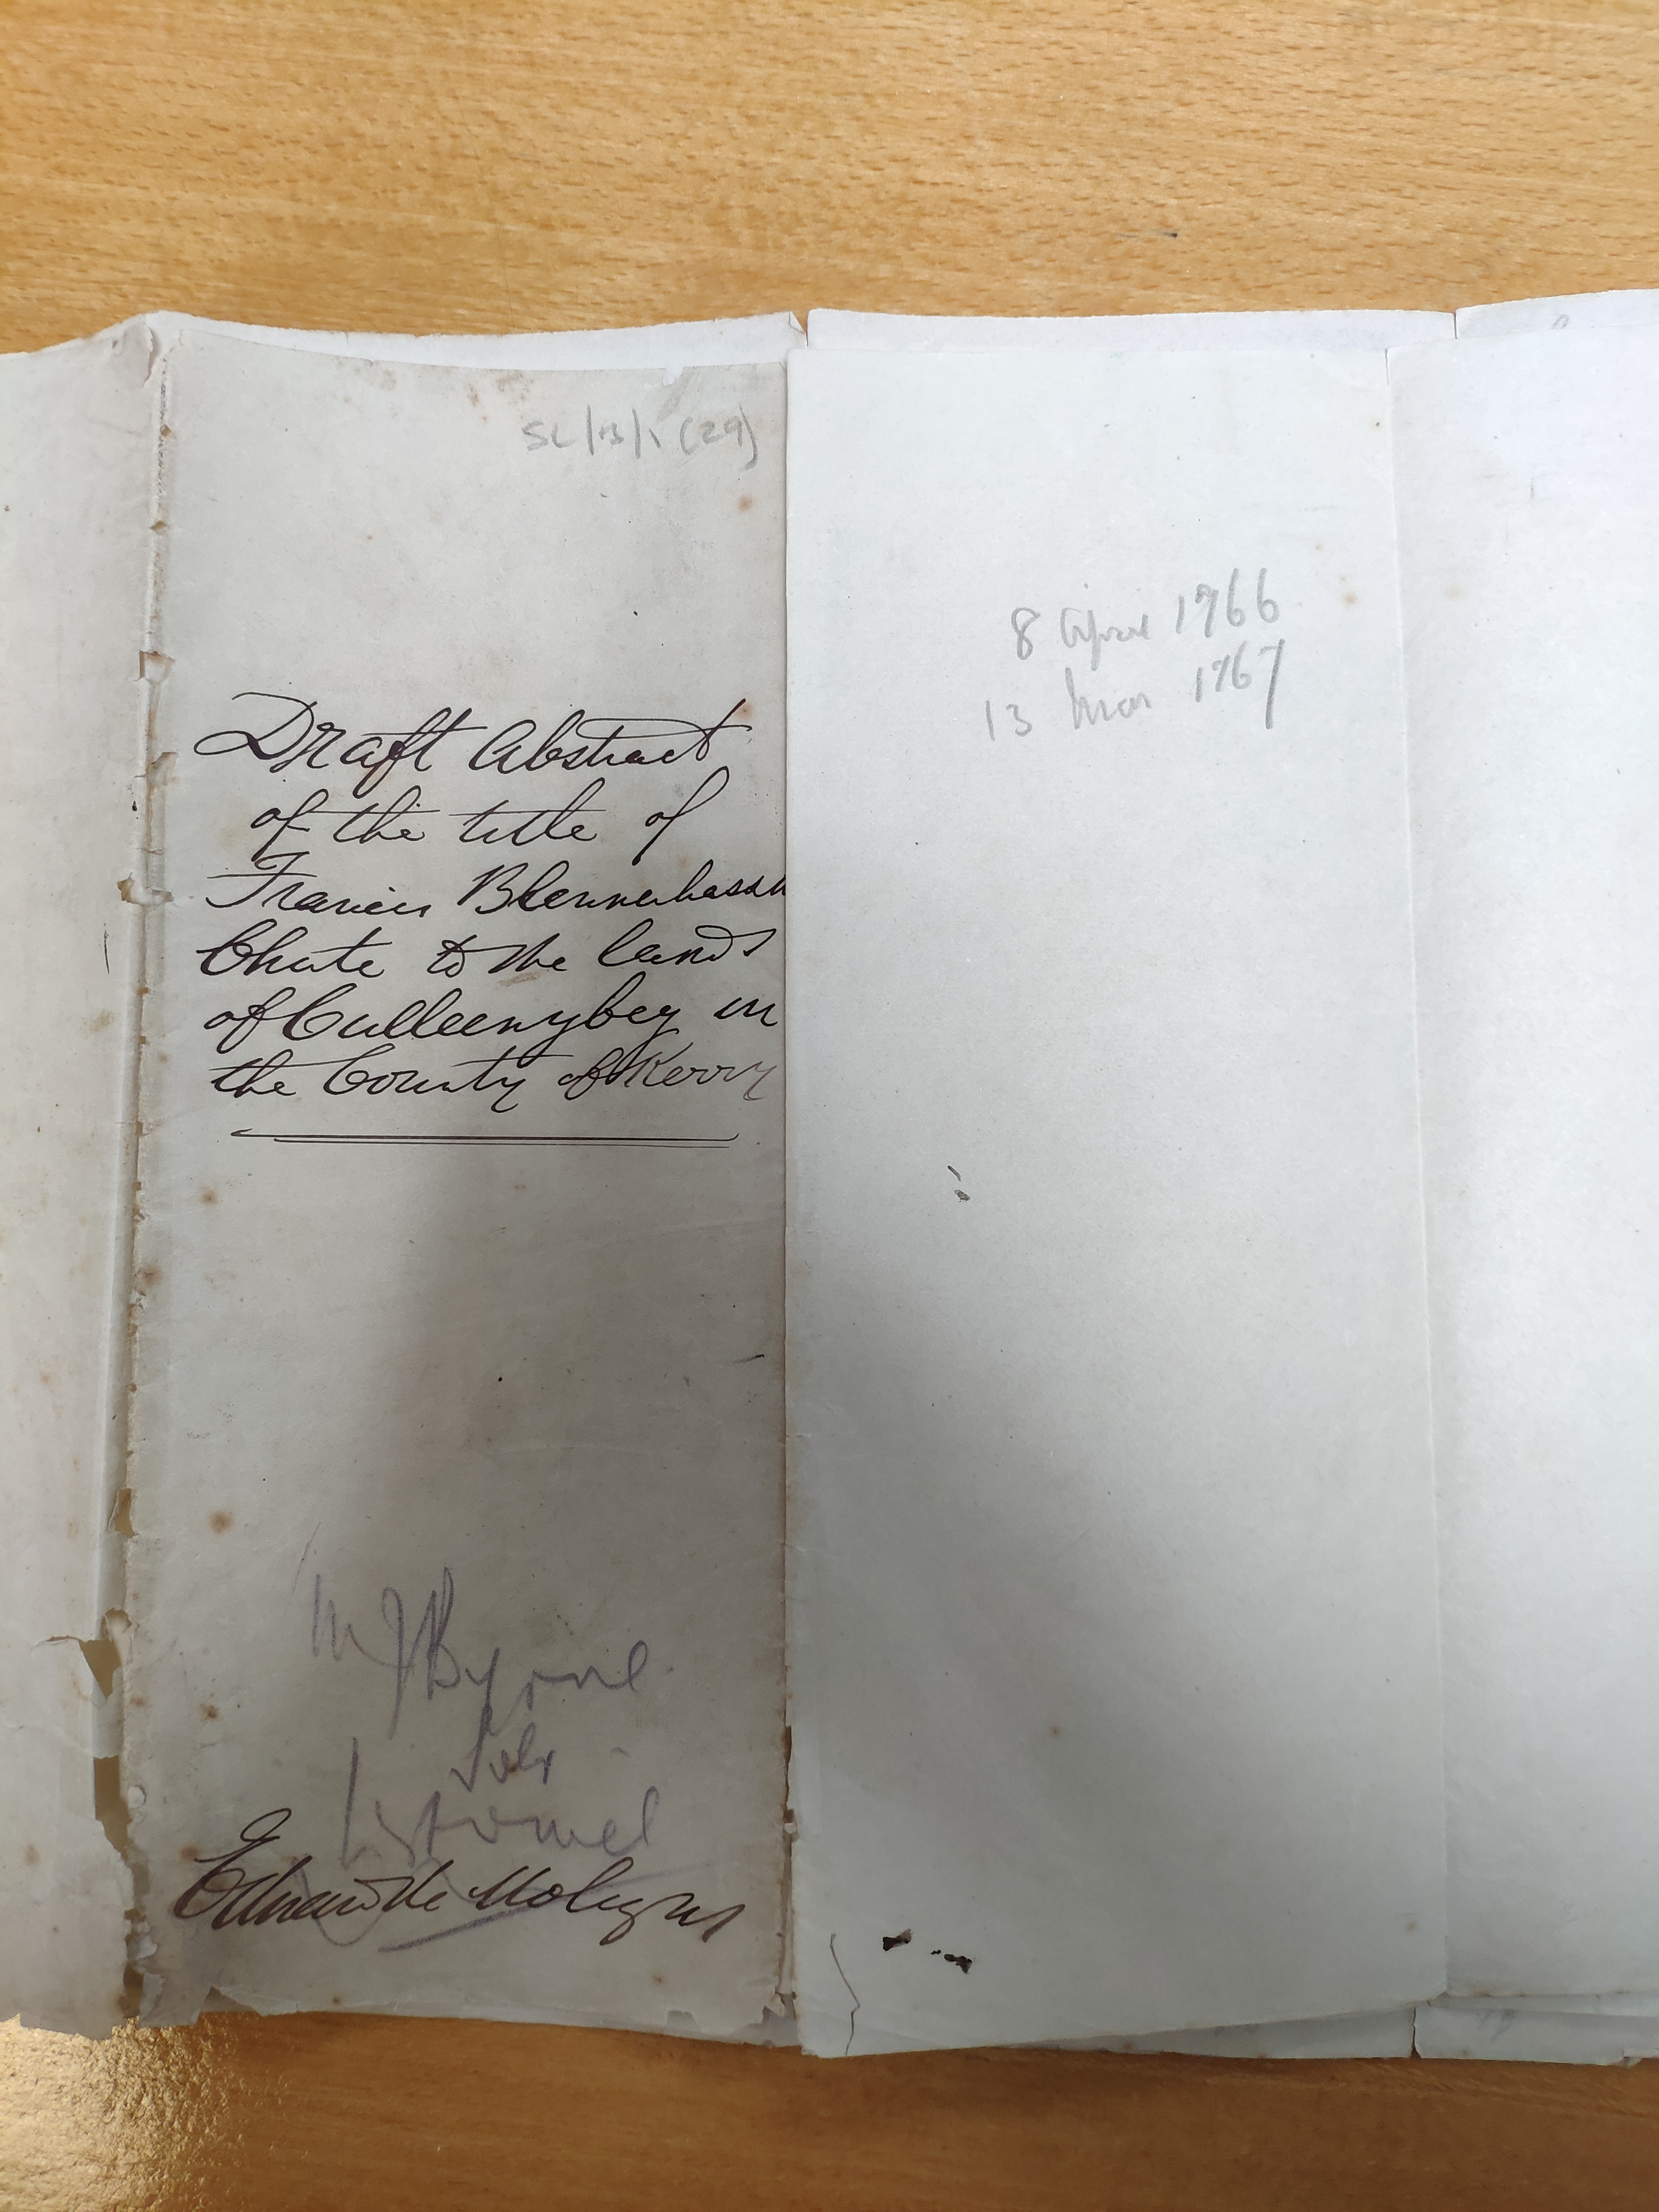 SL/13/1 (29)
Draft Abstract
of the title of
Francis Blennerhassett
Chute to the lands
of Culleenybey in
the County of Kerry
M J Byrne
Solr
Listowel
8 April 1766
13 Mar 1767